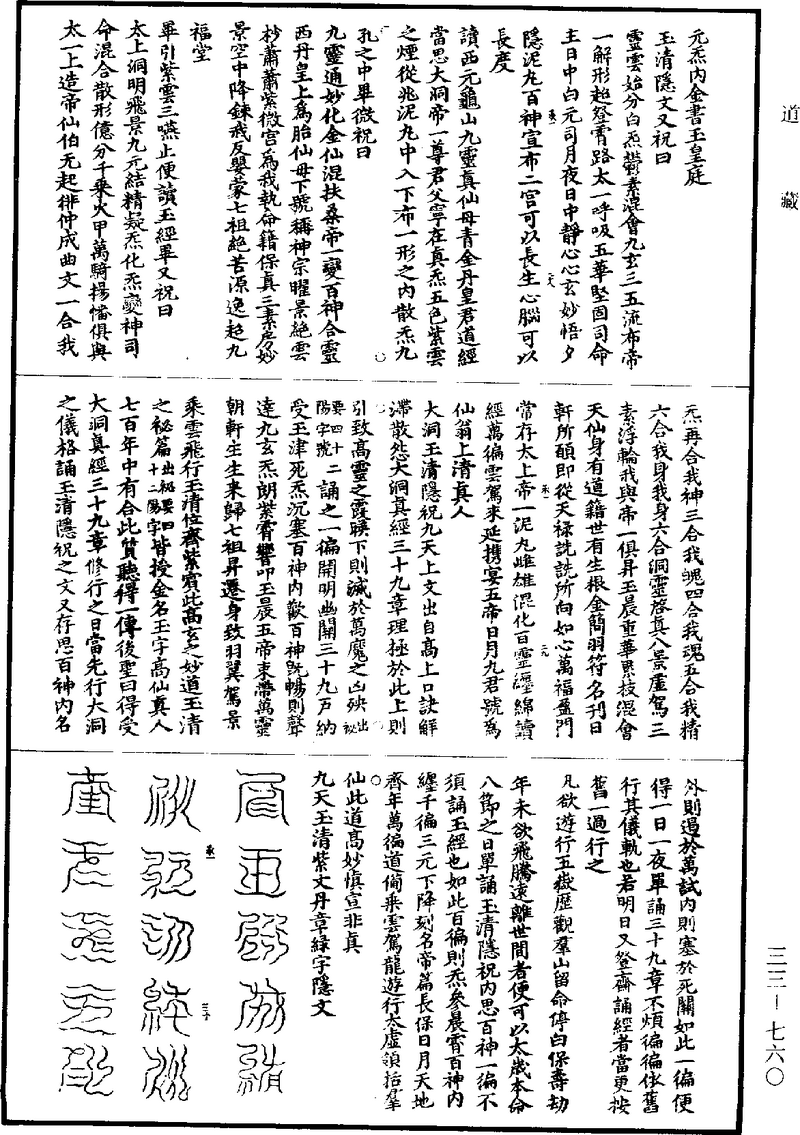 道藏
元炁內金書玉皇庭
玉清隱文又祝曰
靈雲始分白炁鬱素混會九玄三五流布帝
一解形超登霄路太一呼吸五華堅固司命
主日中白元司月夜日中靜心心玄妙悟夕
隱泥丸百神宣布二宮可以長生心腦可以
長度
讀西元龜山九靈真仙母青金丹皇君道經
當思大洞帝一尊君父寧在真炁五色紫雲
之煙從兆泥丸中入下布一形之內散炁九
孔之中畢微祝曰
九靈通妙化金仙混扶桑帝一變百神合靈
西丹皇上為胎仙母下號稱神宗曜景絕雲
杪蕭蕭紫微宮為我執命籍保真三素房妙
景空中降鍊戒反嬰蒙七祖絕苦源逸超九
福堂
畢引紫雲三嚥止便讀玉經畢又祝曰
太上洞明飛景九元結精凝炁化炁變神司
命混合散形億分千乘火甲萬騎揚幡俱與
太一上造帝仙伯无起徘仲成曲文一合我
炁再合我神三合我魄四合我魂五合我精
六合我身我身六合洞靈啓真八景廬駕三
素浮輪我與帝一俱昇玉晨重華累枝混會
天仙身有道籍世有生根金簡羽符名刊日
軒所願即從天祿詵詵所向如心萬福盈門
常存太上帝一泥丸雌雄混化百靈纏綿讀
經萬徧雲駕來延攜宴五帝日月九君號為
仙翁上清真人
大洞玉清隱祝九天上文出自高上口訣解
滯散怨大洞真經三十九章理極於此上則
引致高靈之霞映下則滅於萬魔之凶殃出祕
要四十二陽字號誦之一徧開明幽關三十九戶納
受玉津死炁沉塞百神內歡百神既暢則聲
達九玄炁朗紫霄響叩玉晨五帝束帶萬靈
朝軒生生來歸七祖昇遷身致羽翼駕景
乘雲飛行玉清位齊紫賓此高玄之妙道玉清
之祕篇出祕要四十二陽字皆授金名玉字高仙真人
七百年中有合此質聽得一傳後聖曰得受
大洞真經三十九章修行之日當先行大洞
之儀格誦玉清隱祝之文又存思百神內名
外則過於萬試內則塞於死關如此一徧便
得一日一夜單誦三十九章不煩徧徧依舊
行其儀軌也若明日又登齋誦經者當更按
舊一過行之
凡欲遊行五嶽歷觀羣山留命停白保壽劫
年未欲飛騰遠離世間者便可以太歲本命
八節之日單誦玉清隱祝內思百神一徧不
須誦玉經也如此百徧則炁參晨霄百神內
纏千徧三元下降刻名帝篇長保日月天地
齊年萬徧道備乘雲駕龍遊行太虛領括羣
仙此道高妙慎宣非真
九天玉清紫文丹章綠字隱文
三三－七六〇